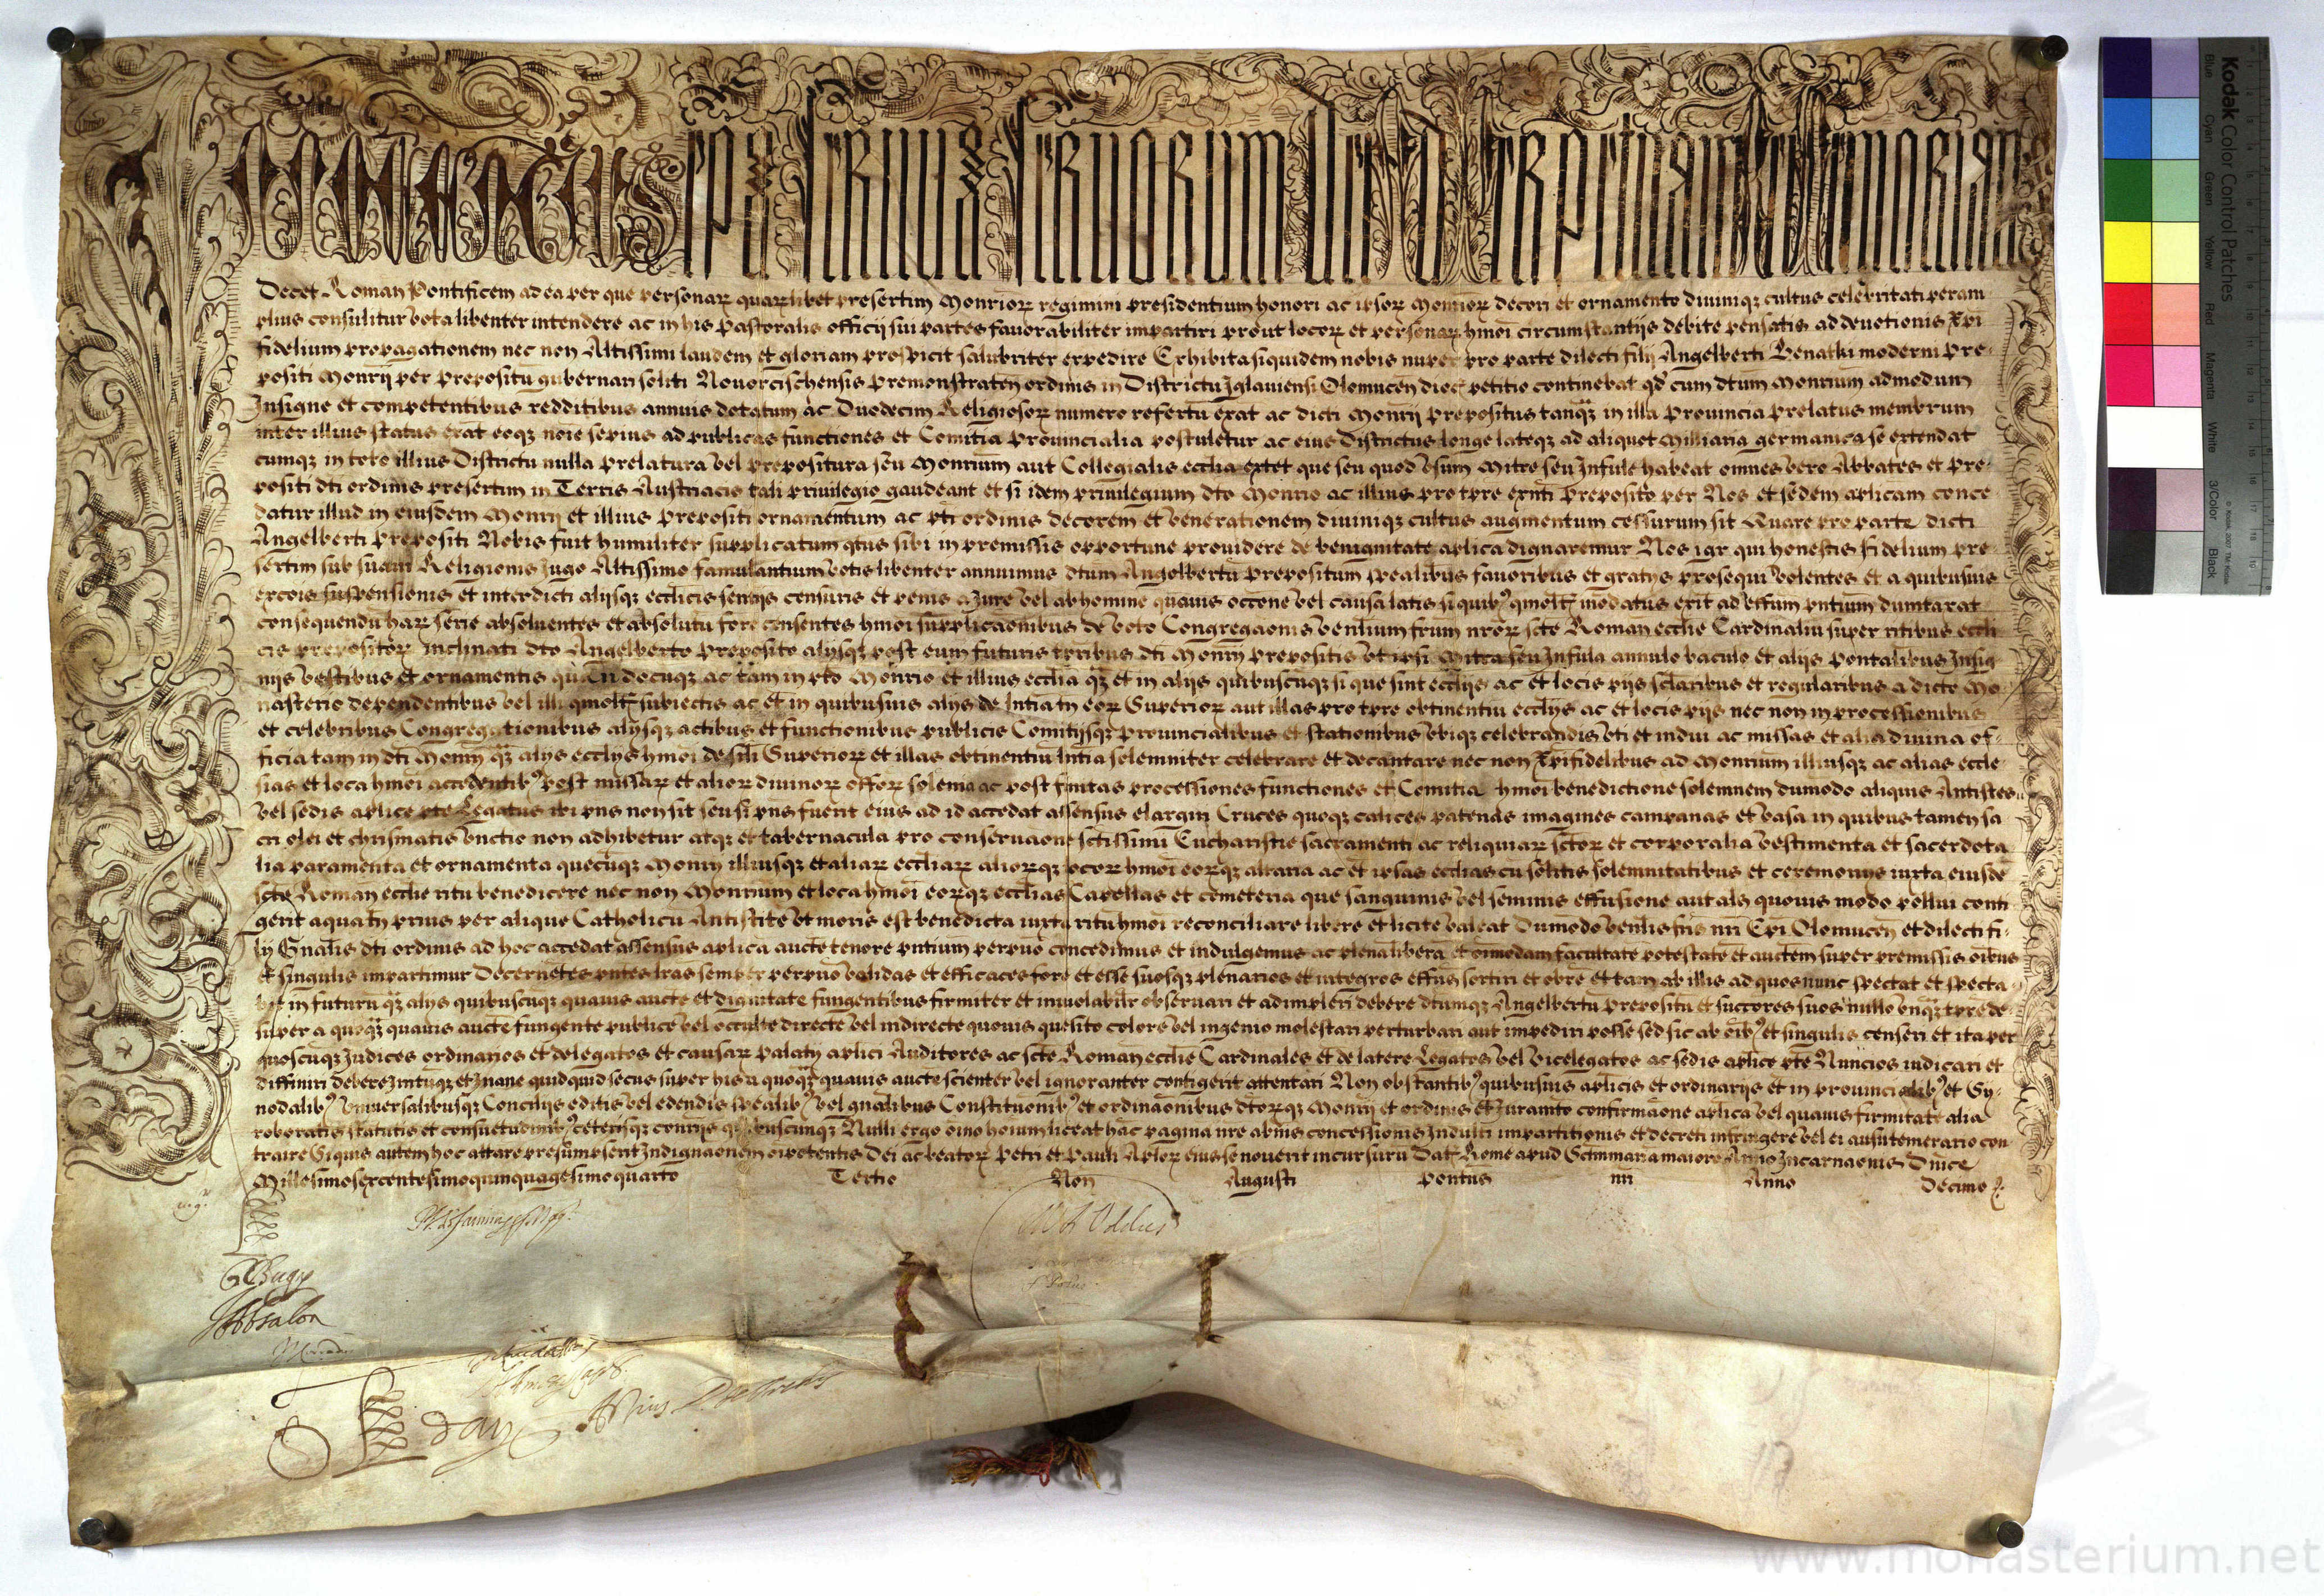 INNOCENTIUS EPÛS SERUUS SERUORUM DEI AD PERPETUAM REI MEMORIAM
Decet Roman Pontificem ad ea per que personaꝝ quaꝝlibet presertim Monrioꝝ regimini presidentium honori ac ipsoꝝ Monrioꝝ decori et ornamento diuiniqꝫ cultus celebritati peram
plius consulitur vota libenter intendere ac in his Pastoralis officij sui partes fauorabiliter impartiri prout locoꝝ et personaꝝ hmoi circumstantijs debite pensatis ad deuotionis Xpi
fidelium propagationem nec non Altissimi laudem et gloriam prospicit salubriter expedire Exhibita siquidem nobis nuper pro parte dilecti filij Angelberti Benatki moderni Pre-
positi Monrij per Prepositu gubernari soliti Nouorcischensis Premonstraten ordinis in Districtu Iglauiensi Olomucen dioc petitio continebat qd cum dtum Monrium admodum
Insigne et competentibus redditibus annuis dotatum ac Duodecim Religiosoꝝ numero refertu exat ac dicti Monrij Prepositus tanqꝫ in illa Prouincia Prelatus membrum
inter illius status exat eoqꝫ noie sepius ad publicas functiones et Comitia Prouincialia postuletur ac eius Districtus longe lateqꝫ ad aliquet Milliaria germanica se extendat
cumqꝫ in toto illius Districtu nulla Prelatura vel Prepositura seu Monrium aut Collegialis ecclia extet que seu quod vsum Mitre seu Infule habeat omnes vero Abbates et Pre-
positi dti ordinis presertim in Terris Austriacis tali priuilegio gaudeant et si idem priuilegium dto Monrio ac illius pro tpre exnti Preposito per Nos et sedem aplicam conce
datur illud in eiusdem Monrij et illius Prepositi ornamentum ac pti ordinis decorem et venerationem diuiniqꝫ cultus augmentum cessurum sit Quare pro parte dicti
Angelberti Prepositi Nobis fuit humiliter supplicatum qtus sibi in premissis opportune prouidere de benignitate aplica dignaremur Nos igr qui honestis fidelium pre
sertim sub suaui Religionis Iugo Altissimo famulantium votis libenter annuimus dtum Angelbertu Prepositum spealibus fauoribus et gratijs prosequi volentes et a quibusuis
excois suspensionis et interdicti alijsqꝫ ecclicis sentijs censuris et penis a Iure vel ab homine quauis occone vel causa latis si quibꝰ qmolt inodatus exit ad effum pntium dumtaxat
consequendu haꝝ serie absoluentes et absolutu fore censentes hmoi supplicaonibus de voto Congregaonis venlium frum nroꝝ scte Roman ecclie Cardinaliu super ritibus eccli
cis prepositoꝝ Inclinati dto Angelberto Preposito alijsqꝫ post eum futuris tpribus dti Monrij Prepositis vt ipsi Mitra seu Infula annulo baculo et alijs Pontalibus Insig
nijs vestibus et ornamentis ac tam in pto Monrio et illius ecclia qꝫ et in alijs quibuscuqꝫ si que sint ecclijs ac et locis pijs sclaribus et regularibus a dicto Mo
nasterio dependentibus vel illi qmolt subiectis ac et in quibusuis alijs de lntia tn eoꝝ Superioꝝ aut illas pro tpre obtinentiu ecclijs ac et locis pijs nec non in processionibus
et celebribus Congregationibus alijsqꝫ actibus et functionibus publicis Comitijsqꝫ Prouincialibus et stationibus vbiqꝫ celebrandis vti et indui ac missas et alia diuina of-
ficia tam in dti Monrij qꝫ alijs ecclijs hmoi de sili Superioꝝ et illas obtinentiu lntia solemniter celebrare et decantare nec non Xpifidelibus ad Monrium illiusqꝫ ac alias eccle-
sias et loca hmoi accedentibꝰ post missaꝝ et alioꝝ diuinoꝝ offoꝝ solemia ac post finitas processiones functiones et Comitia hmoi benedictione solemnem dumodo aliquis Antistes
vel sedis aplice pte Legatus ibi pns non sit seu si pns fuerit eius ad id accedat assensus elargiri Cruces quoqꝫ calices patenas imagines campanas et vasa in quibus tamen sa
cri olei et chrismatis vnctio non adhibetur atqꝫ et tabernacula pro conseruaone sctissimi Eucharistie sacramenti ac reliquiaꝝ sctoꝝ et corporalia vestimenta et sacerdota
lia paramenta et ornamenta quecuqꝫ Monrij illiusqꝫ et aliaꝝ eccliaꝝ alioꝝqꝫ locoꝝ hmoi eoꝝqꝫ altaria ac et ipsas ecclias cu solitis solemnitatibus et ceremonijs iuxta eiusde
scte Roman ecclie ritu benedicere nec non Monrium et loca hmoi eoꝝqꝫ ecclias Capellas et cemeteria que sanguinis vel seminis effusione aut als quouis modo pollui conti
gerit aqua tn prius per alique Catholicu Antistite vt moris est benedicta iuxta ritu hmoi reconciliare libere et licite valeat Dumodo venlis fris nri Epi Olomucen et dilecti fi-
lij Gnalis dti ordinis ad hoc accedat assensus aplica aucte tenore pntium perpuo concedimus et indulgemus ac plena libera et oimodam facultate potestate et auctem super premissis oibus
et singulis impartimur Decernetes pntes lras semper perpuo validas et efficaces fore et esse suosqꝫ plenarios et integros effus sortiri et obre et tam ab illis ad quos nunc spectat et specta
bit in futuru qꝫ alijs quibuscuqꝫ quauis aucte et dignitate fungentibus firmiter et inuiolabilr obseruari et adimpleri debere dtumqꝫ Angelbertu Prepositu et succores suos nullo vnqꝫ tpre de-
super a quoqꝫ quauis aucte fungente publice vel occulte directe vel indirecte quouis quesito colore vel ingenio molestari perturbari aut impediri posse sed sic ab oibꝰ et singulis censeri et ita per
quoscuqꝫ Iudices ordinarios et delegatos et causaꝝ Palatij aplici Auditores ac scte Roman ecclie Cardinales et de latere Legatos vel vicelegatos ac sedis aplice pte Nuncios iudicari et
diffiniri debere Irrituqꝫ et Inane quidquid secus super his a quoqꝫ quauis aucte scienter vel ignoranter contigerit attentari Non obstantibꝰ quibusuis aplicis et ordinarijs et in prouincialibꝰ et Sy-
nodalibꝰ Vniuersalibusqꝫ Concilijs editis vel edendis spealibꝰ vel gnalibus Constituonibꝰ et ordinaonibus dtoꝝqꝫ Monrij et ordinis et Iuramto confirmaone aplica vel quauis firmitate alia
roboratis statutis et consuetudinibꝰ ceterisqꝫ contrijs quibuscunqꝫ Nulli ergo oino hoium liceat hac pagina nre absnis concessionis Indulti impartitionis et decreti infringere vel ei ausu temerario con
traire Siquis autem hoc attare presumpserit Indignaonem oipotentis Dei ac beatoꝝ Petri et Pauli Aploꝝ eius se nouerit incursuru Dat Rome apud Sctam Mariam maiore Anno Incarnaonis Dnice
Millesimosexcentesimoquinquagesimoquarto Tertio Non Augusti Pontus nri Anno Decimo
Absalon
Kodak Color Control Patches
Blue Cyan Green Yellow Red Magenta White 3/Color Black
www.monasterium.net